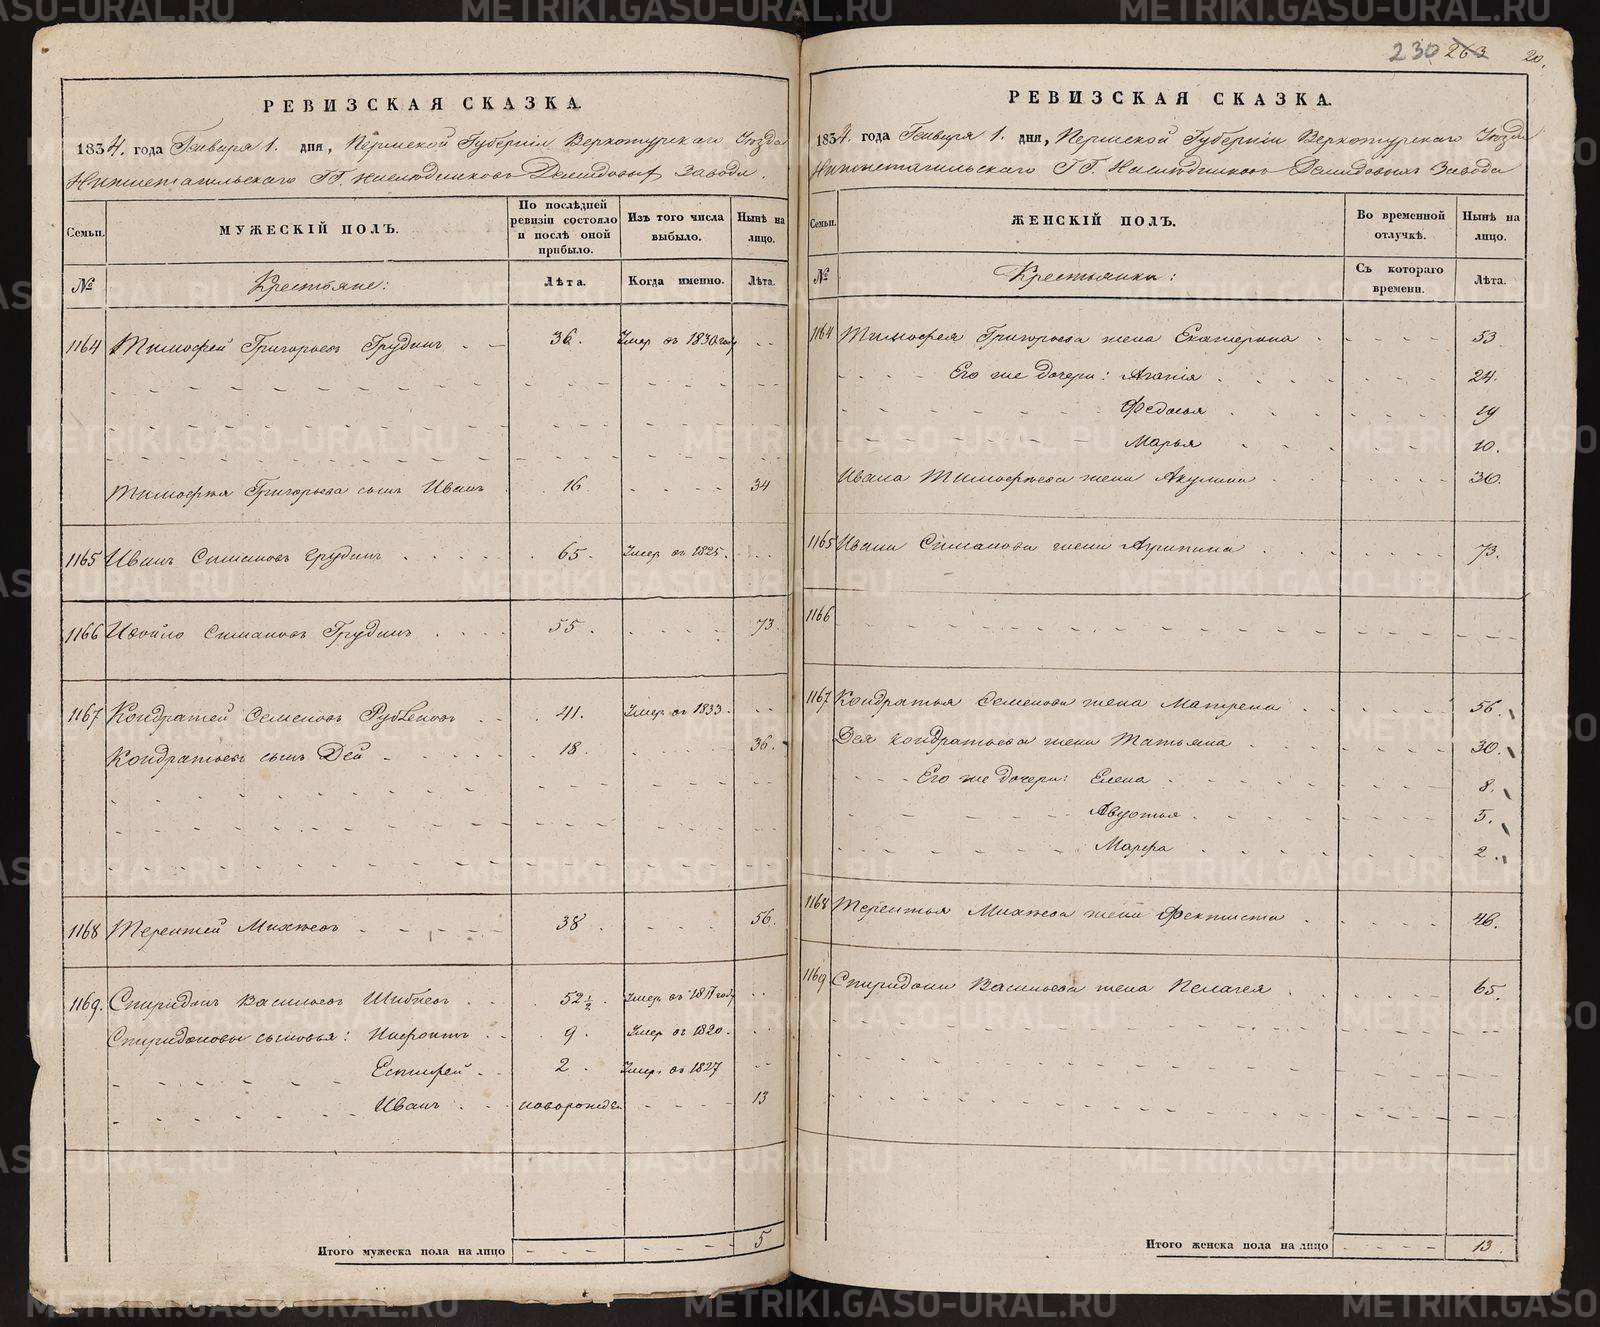 РЕВИЗСКАЯ СКАЗКА.
1834. года Генваря 1. дня, Пермской Губернiи Верхотурскаго Уезда
Нижнетагильскаго ГГ. Наследниковъ Демидовых Завода.
Семьи.
МУЖЕСКIЙ ПОЛЪ.
По послѣдней ревизiи состояло и послѣ оной прибыло.
Изъ того числа выбыло.
Нынѣ на лицо.
№
Крестьяне:
Лѣта.
Когда именно.
Лѣта.
1164 Тимофей Григорьевъ Грудинъ 36. Умер въ 1830 году
Тимофея Григорьева сынъ Иванъ 16 34
1165 Иванъ Симановъ Грудинъ 65. Умер въ 1825.
1166 Симановъ Грудинъ 55. 73.
1167 Кондратей Семеновъ 41. Умер въ 1833.
Кондратьевъ сынъ Дей 18. 36.
1168 Терентей Михѣевъ 38. 56.
1169. Спиридонъ Васильевъ 52½. Умер въ году
Спиридоновы сыновья: 9. Умер въ 1820.
Естифей 2. Умер въ 1827
Иванъ новорожден 13
Итого мужеска пола на лицо 5
230 263 20.
РЕВИЗСКАЯ СКАЗКА.
1834. года Генваря 1. дня, Пермской Губернiи Верхотурскаго Уезда
Нижнетагильскаго ГГ. Наследниковъ Демидовыхъ Завода
Семьи.
ЖЕНСКIЙ ПОЛЪ.
Во временной отлучкѣ.
Нынѣ на лицо.
№
Крестьянки:
Съ котораго времени.
Лѣта.
1164 Тимофея Григорьева жена Екатерина 53
Его же дочери: Агапiя 24.
Федосья 19
Марья 10.
Ивана Тимофѣева жена Акулина 30.
1165 Ивана Симанова жена Агрипина 73.
1166
1167 Кондратья Семенова жена Матрена 56.
Дея Кондратьева жена Татьяна 30.
Его же дочери: Елена 8.
Авдотья 5.
Марфа 2.
1168 Терентья Михѣева жена Фектиста 46.
1169 Спиридона Васильева жена Пелагея 65.
Итого женска пола на лицо 13.
METRIKI.GASO-URAL.RU